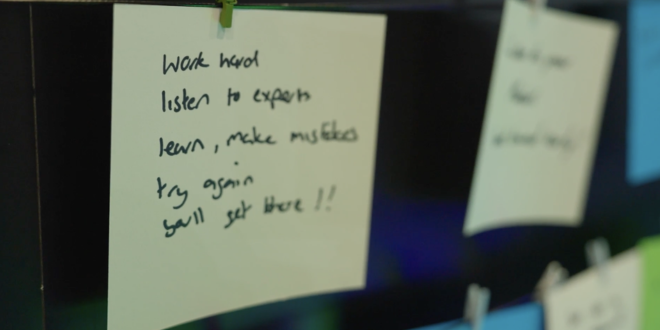 Work hard
listen to experts
learn, make mistakes
try again
you'll get there !!